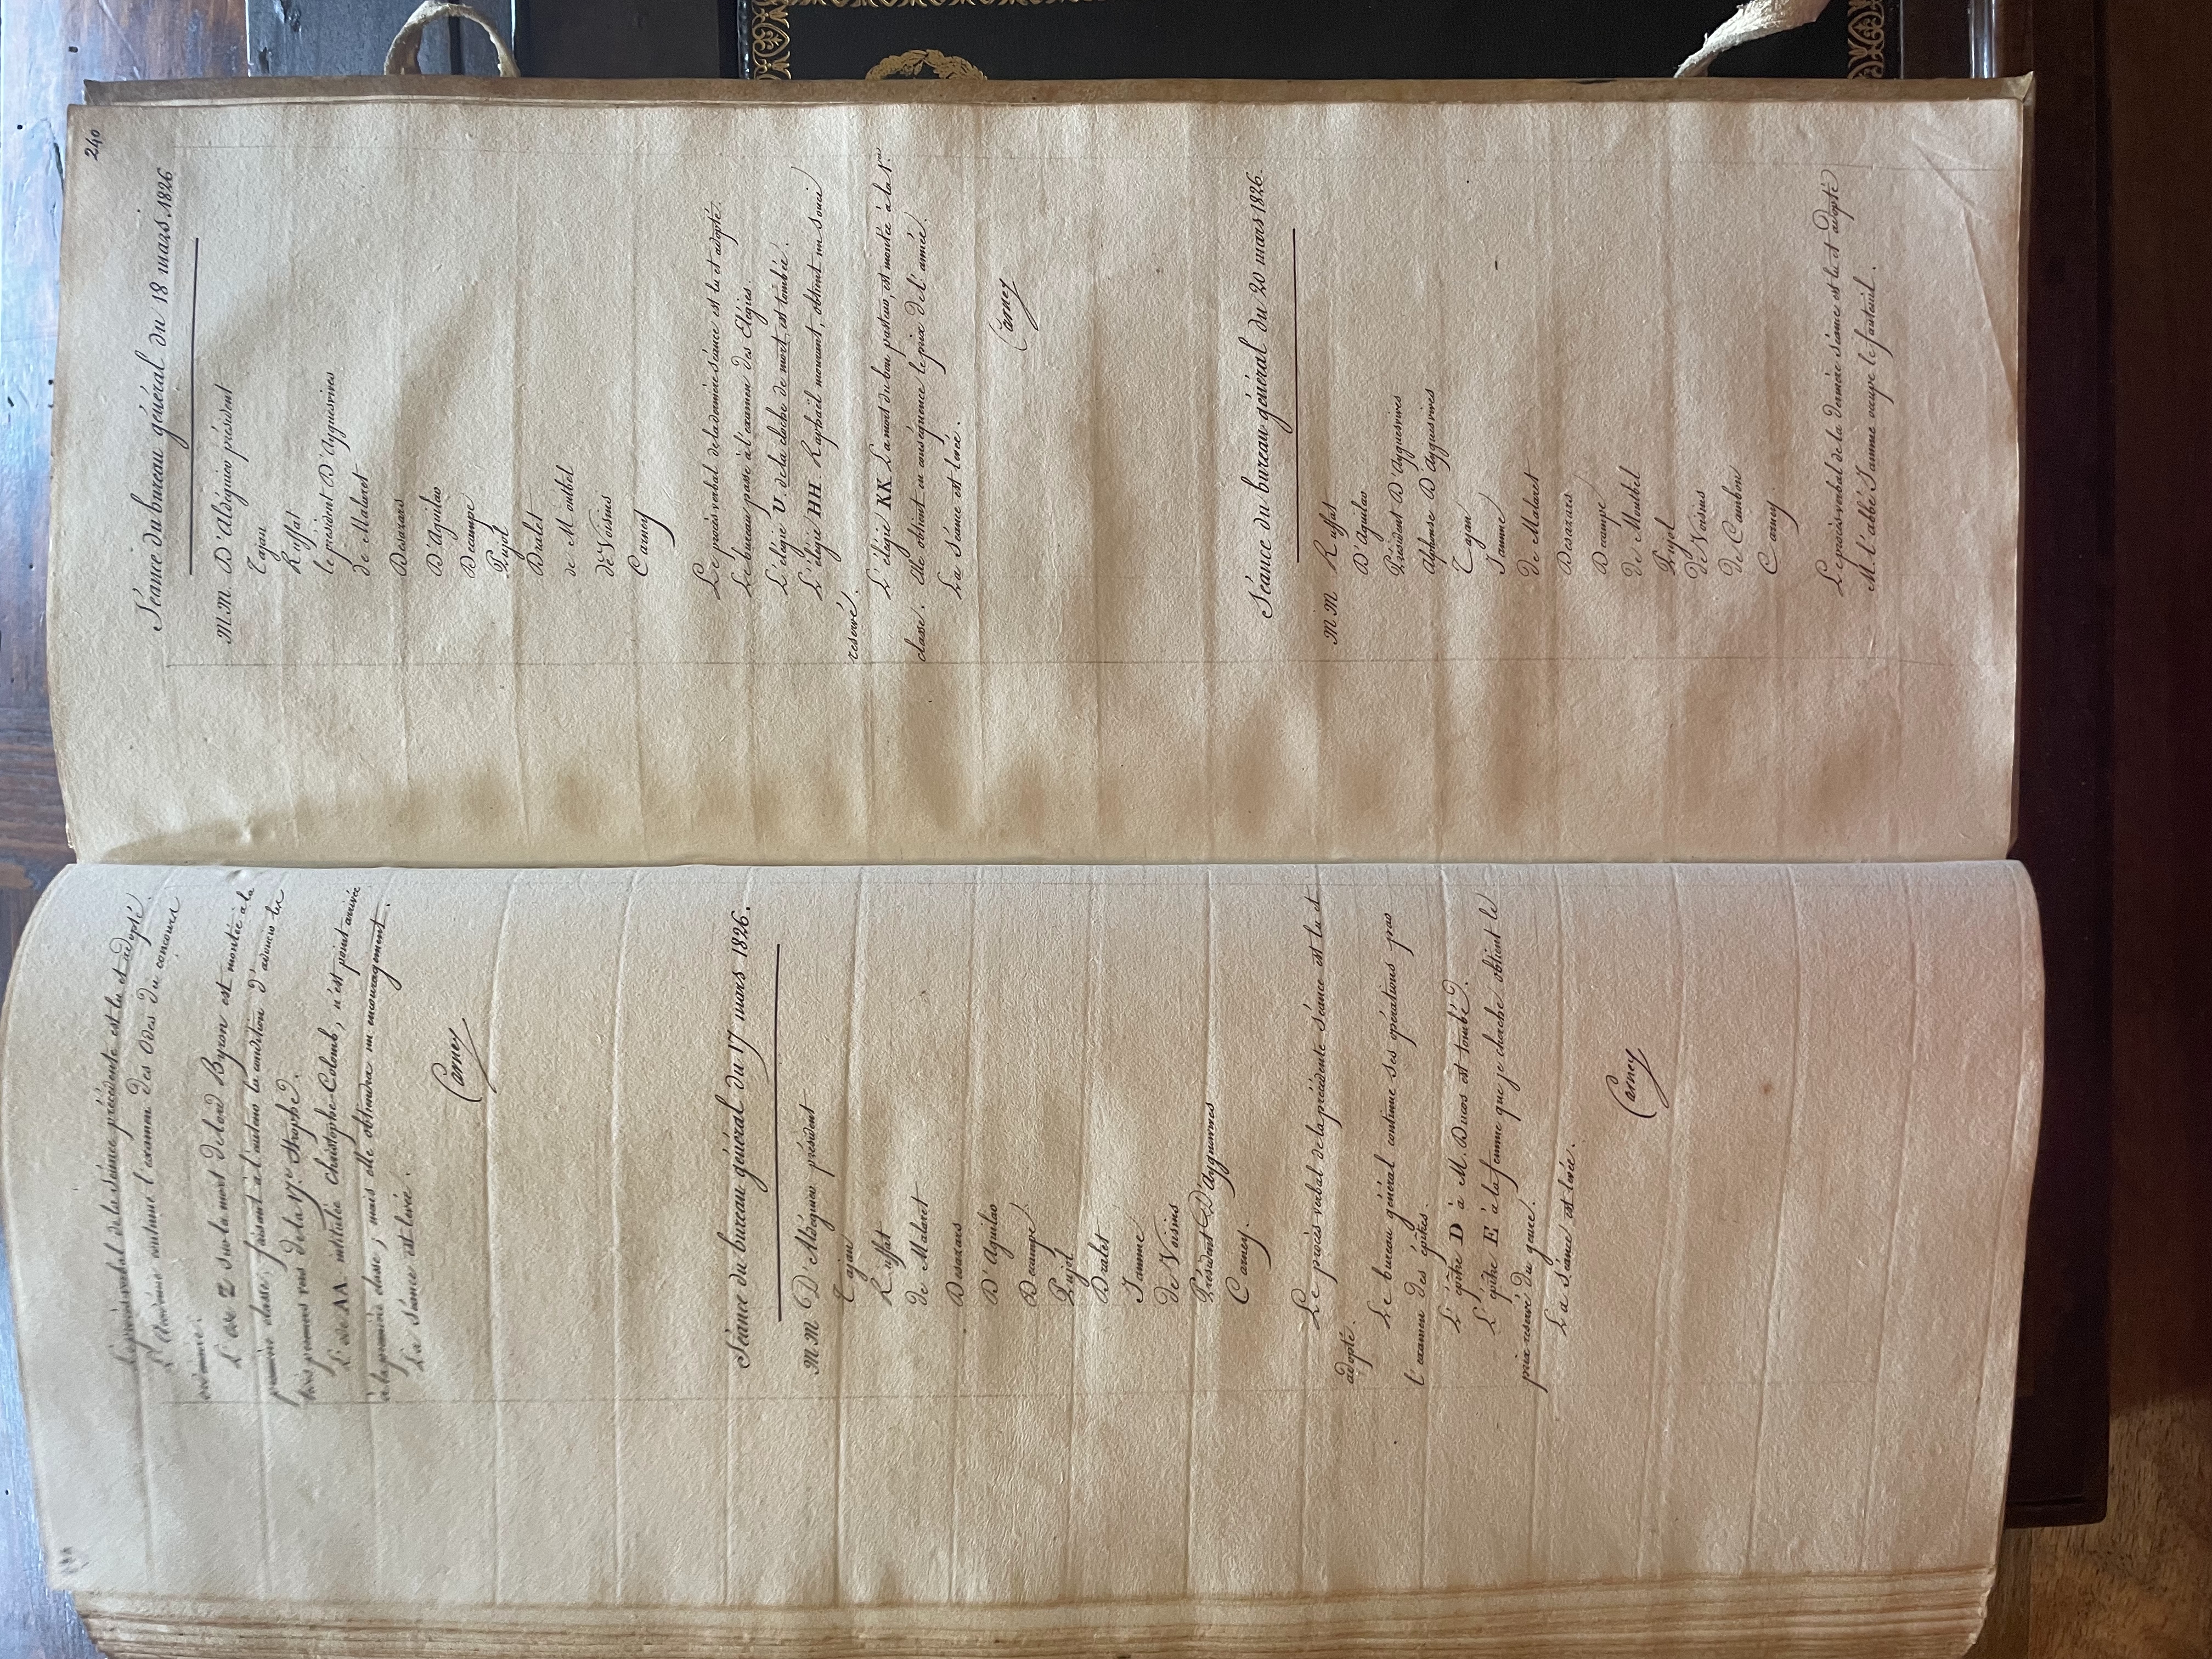 Le procès verbal de la séance précédente est lu et adopté.
L'Académie continue l'examen des Odes du concours
L'ode Z sur la mort de lord Byron est montée à la
première classe, faisant à l'auteur la condition d'adoucir les
trois premiers vers de la 17e. Strophe.
L'ode AA intitulée Christophe-Colomb, n'est point arrivée
à la première classe ; mais elle obtiendra un encouragement.
La séance est levée.
Carney
Séance du bureau général du 17 mars 1826.
MM D'Aldéguier président
Tajan
Ruffat
de Malaret
Desazars
D'Aguilar
Decampe
Pujol
Dralet
Jamme
De Voisins
Président D'Ayguesvives
Carney.
Le procès verbal de la précédente séance est lu et
adopté.
Le bureau général continue ses opérations par
l'examen des épitres.
L'épitre D à M. Ducos est tombée.
L'épitre E à la femme que je cherche obtient le
prix réservé du genre.
La séance est levée.
Carney
240
Séance du bureau général du 18 mars 1826
MM. D'Aldéguier président
Tajan
Ruffat
le président D'Ayguesvives
de Malaret
Desazars
D'Aguilar
Decampe
Pujol
Dralet
de Montbel
de Voisins
Carney
Le procès verbal de la dernière séance est lu et adopté.
Le bureau passe à l'examen des Elégies.
L'élégie U. de la cloche de mort, est tombée.
L'élégie HH. Raphaël mourant, obtient un souci
réservé.
L'élégie KK La mort du bon pasteur, est montée à la 1re
classe. elle obtient en conséquence le prix de l'année.
La séance est levée.
Carney
Séance du bureau général du 20 mars 1826.
MM Ruffat
D'Aguilar
Président D'Ayguesvives
Alphonse D'Ayguesvives
Tajan
Jamme
de Malaret
Desazars
Decampe
de Montbel
Pujol
de Voisins
de Cambon
Carney
Le procès verbal de la dernière séance est lu et adopté
M. l'abbé Jamme occupe le fauteuil.